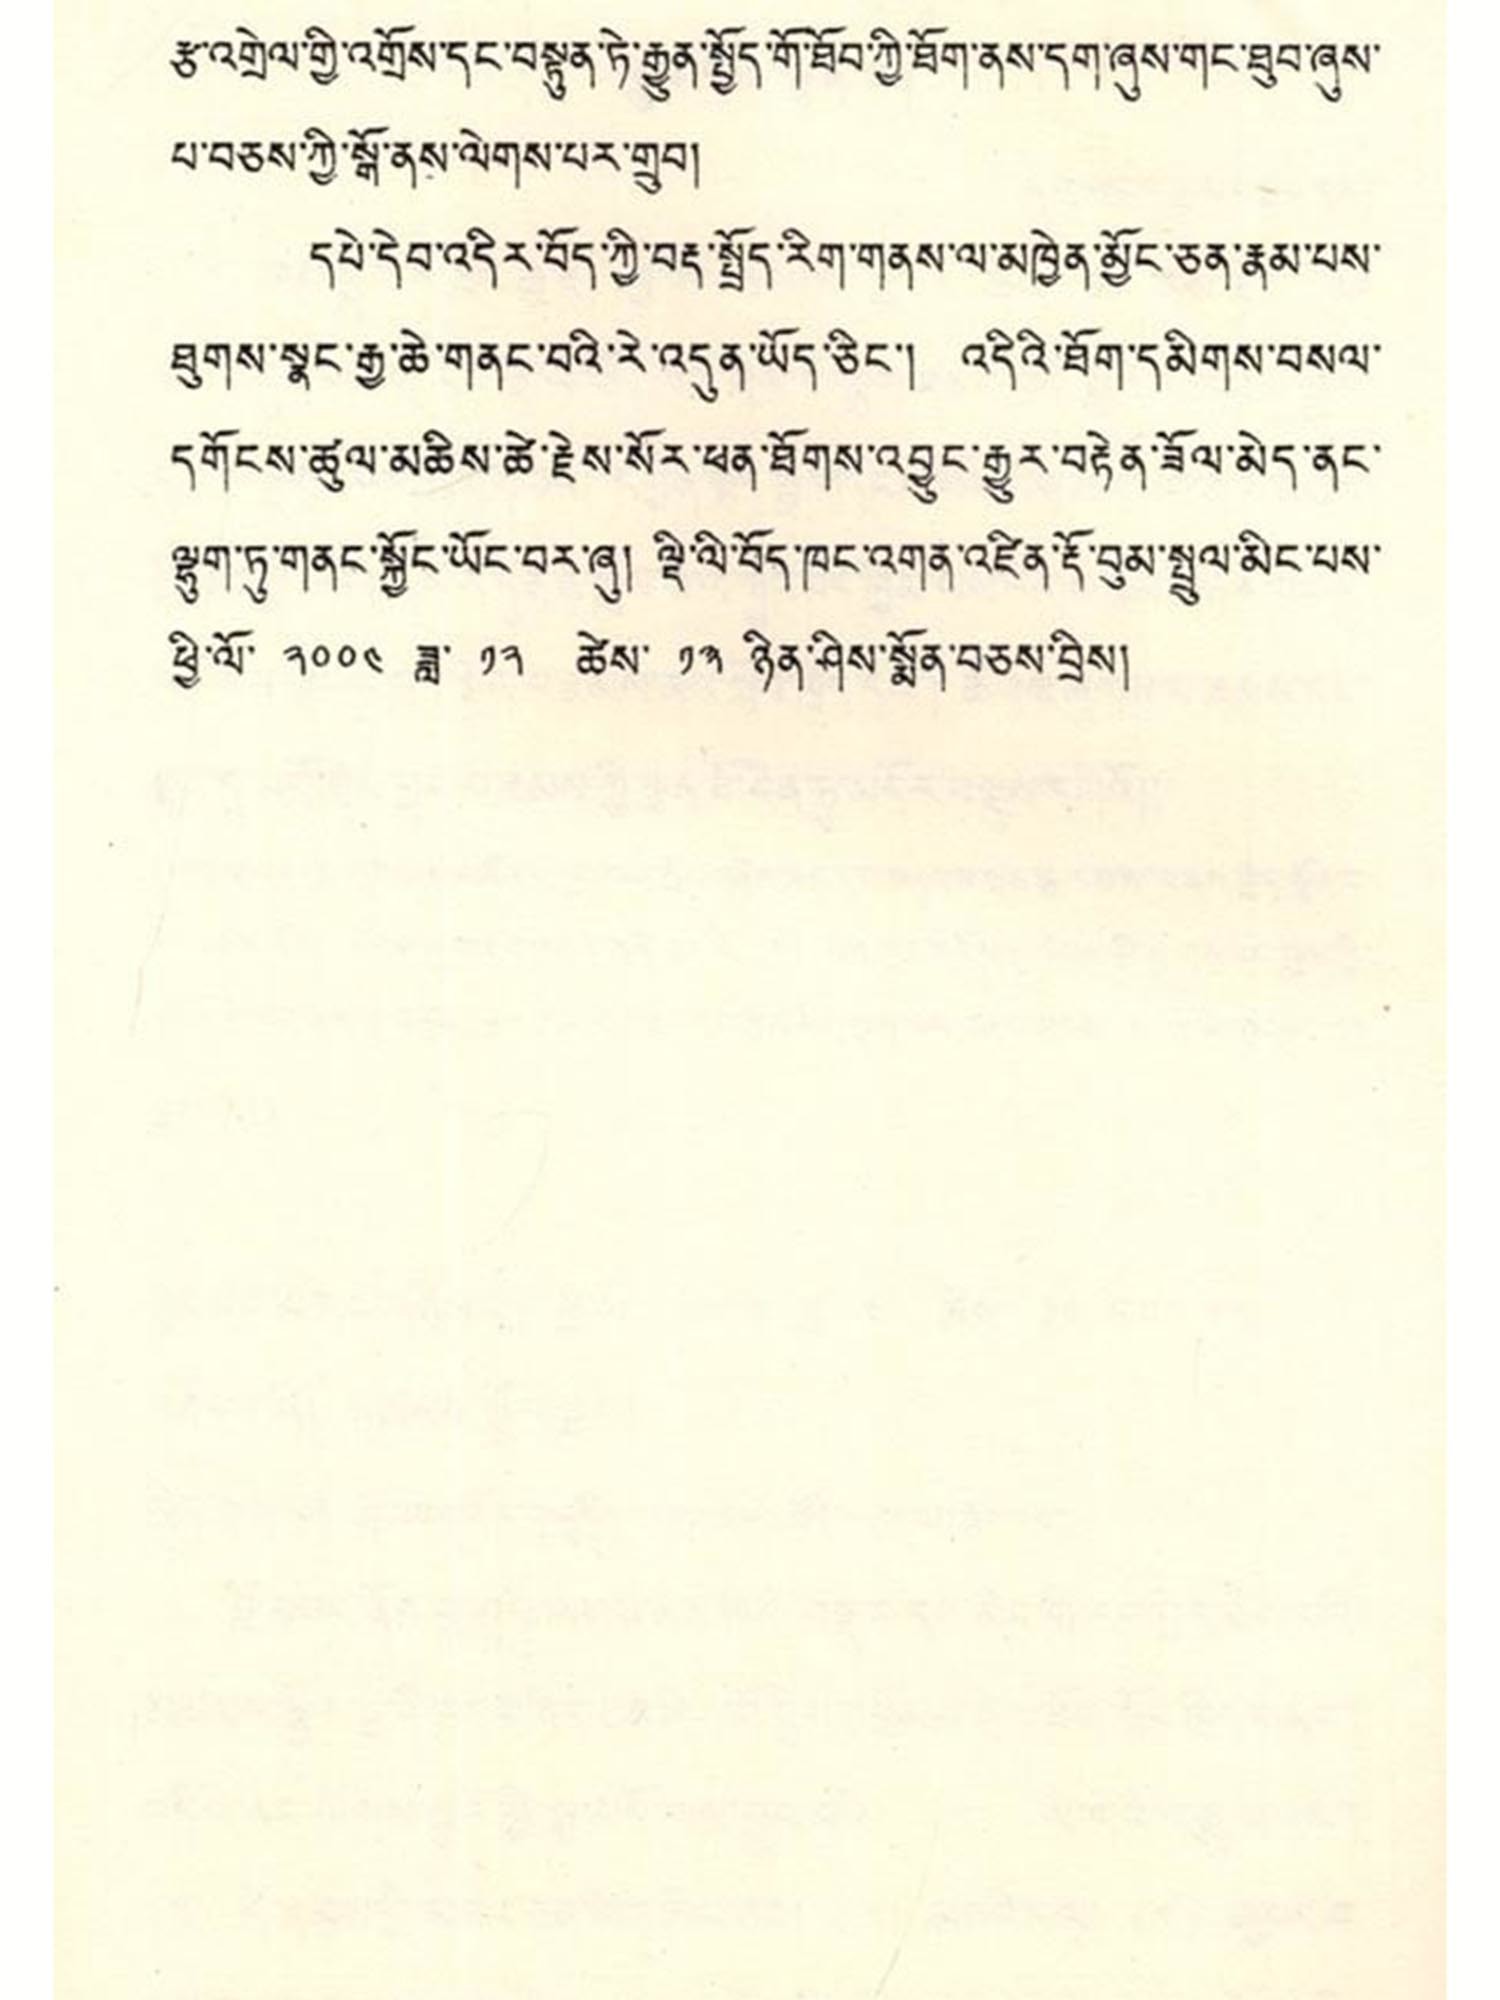 རྩ་འགྲེལ་གྱི་འགྲོས་དང་བསྟུན་ཏེ་རྒྱུན་སྤྱོད་གོ་ཐོབ་ཀྱི་ཐོག་ནས་དག་ཞུས་གང་ཐུབ་ཞུས་
པ་བཅས་ཀྱི་སྒོ་ནས་ལེགས་པར་གྲུབ།
དཔེ་དེབ་འདིར་བོད་ཀྱི་བརྡ་སྤྲོད་རིག་གནས་ལ་མཁྱེན་མྱོང་ཅན་རྣམ་པས་
ཐུགས་སྣང་རྒྱ་ཆེ་གནང་བའི་རེ་འདུན་ཡོད་ཅིང་། འདིའི་ཐོག་དམིགས་བསལ་
དགོངས་ཚུལ་མཆིས་ཚེ་རྗེས་སོར་ཕན་ཐོགས་འབྱུང་རྒྱུར་བརྟེན་ཟོལ་མེད་ནང་
ལྷུག་ཏུ་གནང་སྐྱོང་ཡོང་བར་ཞུ། ལྡི་ལི་བོད་ཁང་འགན་འཛིན་རྡོ་བུམ་སྤྲུལ་མིང་པས་
ཕྱི་ལོ་ ༢༠༠༤ ཟླ་ ༡༢ ཚེས་ ༡༣ ཉིན་ཤིས་སྨོན་བཅས་བྲིས།